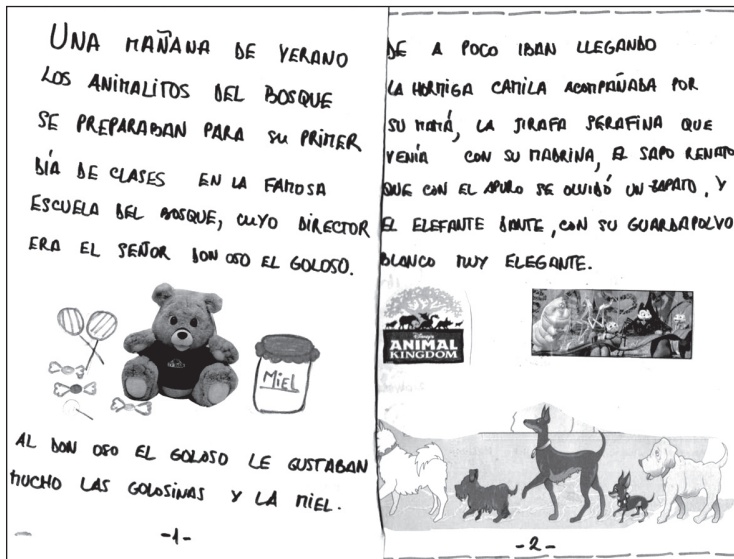 UNA MAÑANA DE VERANO
LOS ANIMALITOS DEL BOSQUE
SE PREPARABAN PARA SU PRIMER
DÍA DE CLASES EN LA FAMOSA
ESCUELA DEL BOSQUE, CUYO DIRECTOR
ERA EL SEÑOR DON OSO EL GOLOSO.
MIEL
AL DON OSO EL GOLOSO LE GUSTABAN
MUCHO LAS GOLOSINAS Y LA MIEL.
-1-
DE A POCO IBAN LLEGANDO
LA HORMIGA CAMILA ACOMPAÑADA POR
SU MAMÁ, LA JIRAFA SERAFINA QUE
VENÍA CON SU MADRINA, EL SAPO RENATO
QUE CON EL APURO SE OLVIDÓ UN ZAPATO, Y
EL ELEFANTE DANTE, CON SU GUARDAPOLVO
BLANCO MUY ELEGANTE.
Disney's
ANIMAL
KINGDOM
-2-